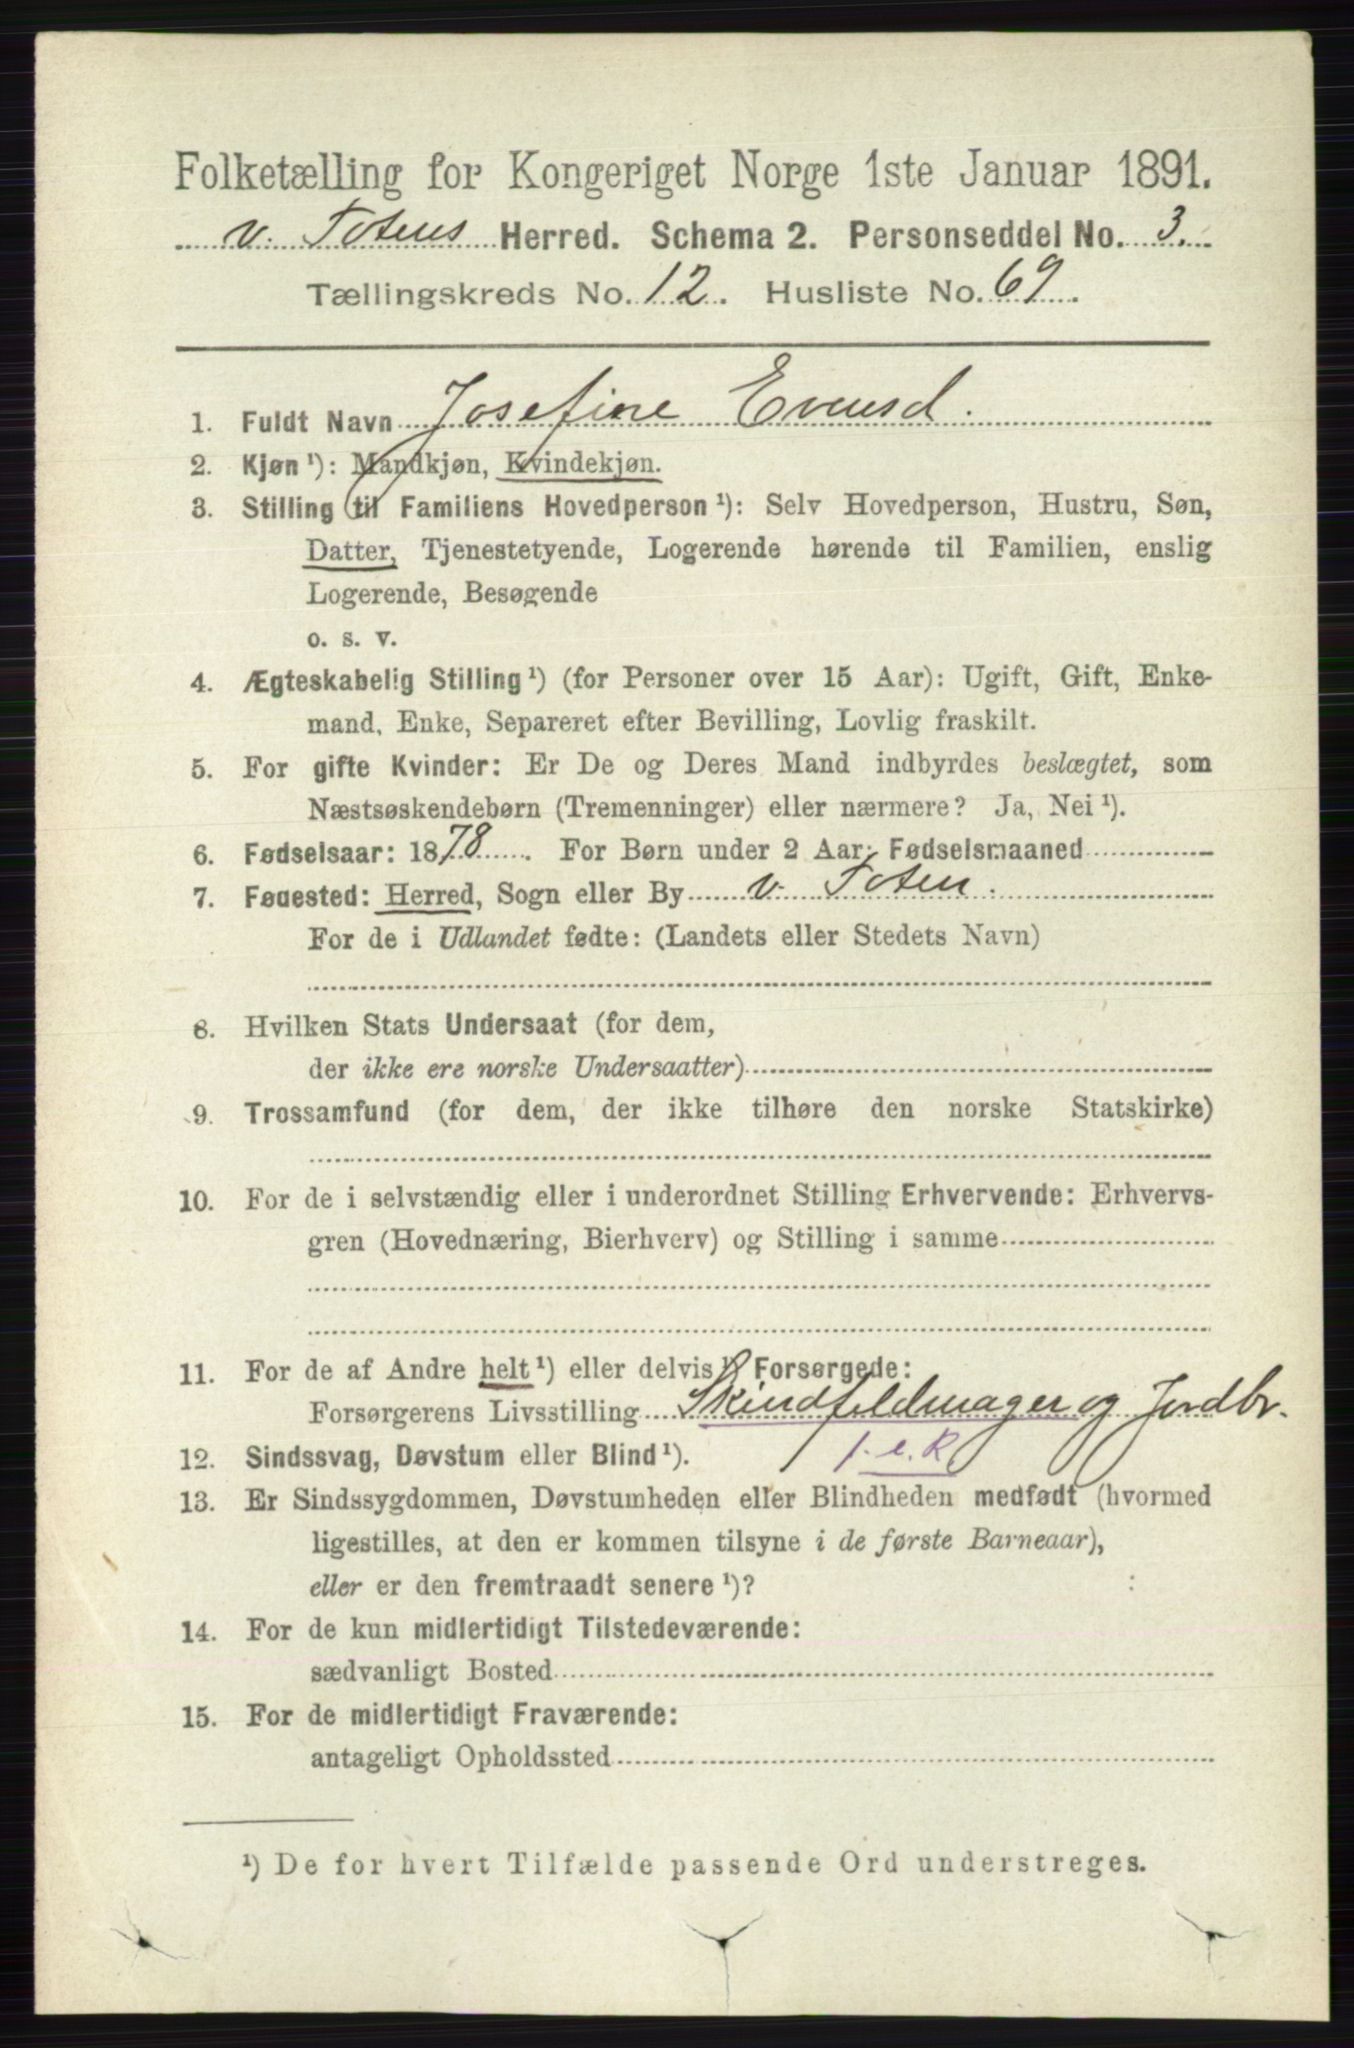 Folketælling for Kongeriget Norge 1ste Januar 1891.
v. Totens Herred. Schema 2. Personseddel No. 3.
Tællingskreds No. 12. Husliste No. 69.
1. Fuldt Navn Josefine Evensd.
2. Kjøn¹): Mandkjøn, Kvindekjøn.
3. Stilling til Familiens Hovedperson¹): Selv Hovedperson, Hustru, Søn,
Datter, Tjenestetyende, Logerende hørende til Familien, enslig
Logerende, Besøgende
o. s. v.
4. Ægteskabelig Stilling¹) (for Personer over 15 Aar): Ugift, Gift, Enke-
mand, Enke, Separeret efter Bevilling, Lovlig fraskilt.
5. For gifte Kvinder: Er De og Deres Mand indbyrdes beslægtet, som
Næstsøskendebørn (Tremenninger) eller nærmere? Ja, Nei¹).
6. Fødselsaar: 1878. For Børn under 2 Aar: Fødselsmaaned
7. Fødested: Herred, Sogn eller By v. Toten.
For de i Udlandet fødte: (Landets eller Stedets Navn)
8. Hvilken Stats Undersaat (for dem,
der ikke ere norske Undersaatter)
9. Trossamfund (for dem, der ikke tilhøre den norske Statskirke)
10. For de i selvstændig eller i underordnet Stilling Erhvervende: Erhvervs-
gren (Hovednæring, Bierhverv) og Stilling i samme
11. For de af Andre helt¹) eller delvis¹) Forsørgede:
Forsørgerens Livsstilling Skindfeldmager og Jordbr.
12. Sindssvag, Døvstum eller Blind¹).
13. Er Sindssygdommen, Døvstumheden eller Blindheden medfødt (hvormed
ligestilles, at den er kommen tilsyne i de første Barneaar),
eller er den fremtraadt senere¹)?
14. For de kun midlertidigt Tilstedeværende:
sædvanligt Bosted
15. For de midlertidigt Fraværende:
antageligt Opholdssted
¹) De for hvert Tilfælde passende Ord understreges.